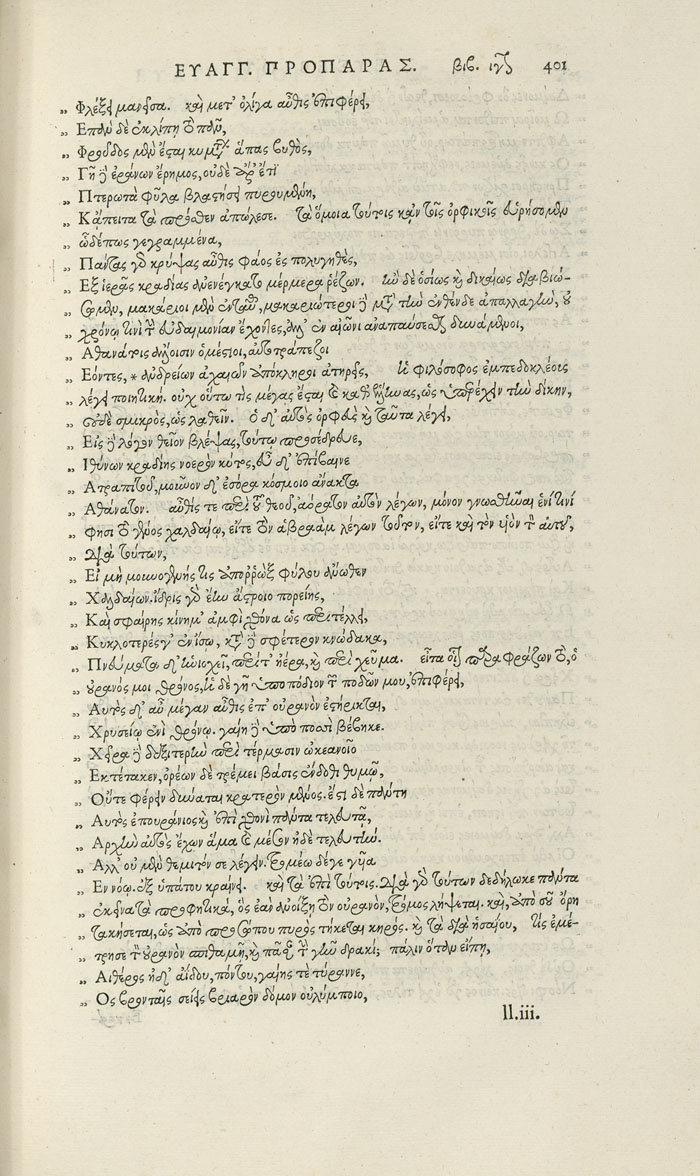 ΕΥΑΓΓ. ΠΡΟΠΑΡΑΣ. βιβ. ιγ 401
„ Φλέξει μανεῖσα. καὶ μετ' ὀλίγα αὖθις ἐπιφέρει,
„ Ἐπὰν δὲ ἐκλίπῃ τὸ πᾶν,
„ Φροῦδος μὲν ἔσται κυμάτων ἅπας βυθὸς,
„ Γῆ δὲ ἑδράνων ἔρημος, οὐδὲ ἀὴρ ἔτι
„ Πτερωτὰ φῦλα βλαστήσει πυρουμένη,
„ Κἄπειτα τὰ πρόσθεν ἀπώλεσε. τὰ ὅμοια τούτοις κἀν τοῖς ὀρφικοῖς εὑρήσομεν
„ ὧδέπως γεγραμμένα,
„ Πάντας γὰρ κρύψας αὖθις φάος ἐς πολυγηθὲς,
„ Ἐξ ἱερῆς κραδίας ἀνενέγκατο μέρμερα ῥέζων. ἢν δὲ ὁσίως καὶ δικαίως διαβιώ-
„ σωμεν, μακάριοι μὲν ἐνταῦθα, μακαριώτεροι δὲ μετὰ τὴν ἐνθένδε ἀπαλλαγὴν, οὐ
„ χρόνῳ τινὶ τὴν εὐδαιμονίαν ἔχοντες, ἀλλ' ἐν αἰῶνι ἀναπαύσεσθαι δυνάμενοι,
„ Ἀθανάτοις ἄλλοισιν ὁμέστιοι, αὐτοτράπεζοι
„ Ἐόντες, * ἀνδρείων ἀχαιῶν ἀπόκληροι ἀτηρεῖς, ἡ φιλόσοφος ἐμπεδοκλέους
„ λέγει ποιητική. οὐχ οὕτω τὶς μέγας ἔσται καθ' ἕλληνας, ὡς ὑπερέχειν τὴν δίκην,
„ οὐδὲ σμικρὸς, ὡς λαθεῖν. ὁ δ' αὐτὸς ὀρφεὺς καὶ ταῦτα λέγει,
„ Εἰς δὲ λόγον θεῖον βλέψας, τούτῳ προσέδρευε,
„ Ἰθύνων κραδίης νοερὸν κύτος, εὖ δ' ἐπίβαινε
„ Ἀτραπιτοῦ, μοῦνον δ' ἐσόρα κόσμοιο ἄνακτα
„ Ἀθάνατον. αὖθίς τε περὶ τοῦ θεοῦ, ἀόρατον αὐτὸν λέγων, μόνον γνωσθῆναι ἑνί τινί
„ φησι τὸ γένος χαλδαίῳ, εἴτε τὸν ἀβραὰμ λέγων τοῦτον, εἴτε καὶ τὸν υἱὸν τὸν αὐτοῦ,
„ διὰ τούτων,
„ Εἰ μὴ μουνογενής τις ἀπορρὼξ φύλου ἄνωθεν
„ Χαλδαίων. ἴδρις γὰρ ἔην ἄστροιο πορείης,
„ Καὶ σφαίρης κίνημ' ἀμφὶ χθόνα ὡς περιτέλλει,
„ Κυκλοτερές γ' ἐν ἴσῳ, κατὰ δὲ σφέτερον κνώδακα,
„ Πνεύματα δ' ἡνιοχεῖ, περί τ' ἠέρα, καὶ περὶ χεῦμα. εἶτα οἷον παραφράζων τὸ, ὁ
„ οὐρανός μοι θρόνος, ἡ δὲ γῆ ὑποπόδιον τῶν ποδῶν μου, ἐπιφέρει,
„ Αὐτὸς δ' αὖ μέγαν αὖθις ἐπ' οὐρανὸν ἐστήρικται,
„ Χρυσείῳ ἐνὶ θρόνῳ. γαίη δὲ ὑπὸ ποσσὶ βέβηκε.
„ Χεῖρα δὲ δεξιτερὴν περὶ τέρμασιν ὠκεανοῖο
„ Ἐκτέτακεν, ὀρέων δὲ τρέμει βάσις ἔνδοθι θυμῷ,
„ Οὔτε φέρειν δύναται κρατερὸν μένος. ἔστι δὲ πάντη
„ Αὐτὸς ἐπουράνιος καὶ ἐπὶ χθονὶ πάντα τελευτᾷ,
„ Ἀρχὴν αὐτὸς ἔχων ἅμα καὶ μέσον ἠδὲ τελευτήν.
„ Ἄλλ' οὐ μὲν θεμιτόν σε λέγειν. τρομέω δέ γε γῆια
„ Ἐν νόῳ. ἐξ ὑπάτου κραίνει. καὶ τὰ ἐπὶ τούτοις. διὰ γὰρ τούτων δεδήλωκε πάντα
„ ἐκεῖνα τὰ προφητικὰ, ὃς ἐὰν ἀνοίξῃ τὸν οὐρανὸν, τρόμος λήψεται. καὶ, ἀπὸ σοῦ ὄρη
„ τακήσεται, ὡς ἀπὸ προσώπου πυρὸς τήκεται κηρός. καὶ τὰ διὰ ἡσαΐου, τίς ἐμέ-
„ τρησε τὸν οὐρανὸν σπιθαμῇ, καὶ πᾶσαν τὴν γῆν δρακί; πάλιν ὅταν εἴπῃ,
„ Αἰθέρος ἠδ' ἀΐδου, πόντου, γαίης τε τύραννε,
„ Ὃς βρονταῖς σείεις βριαρὸν δόμον οὐλύμποιο,
ll.iii.